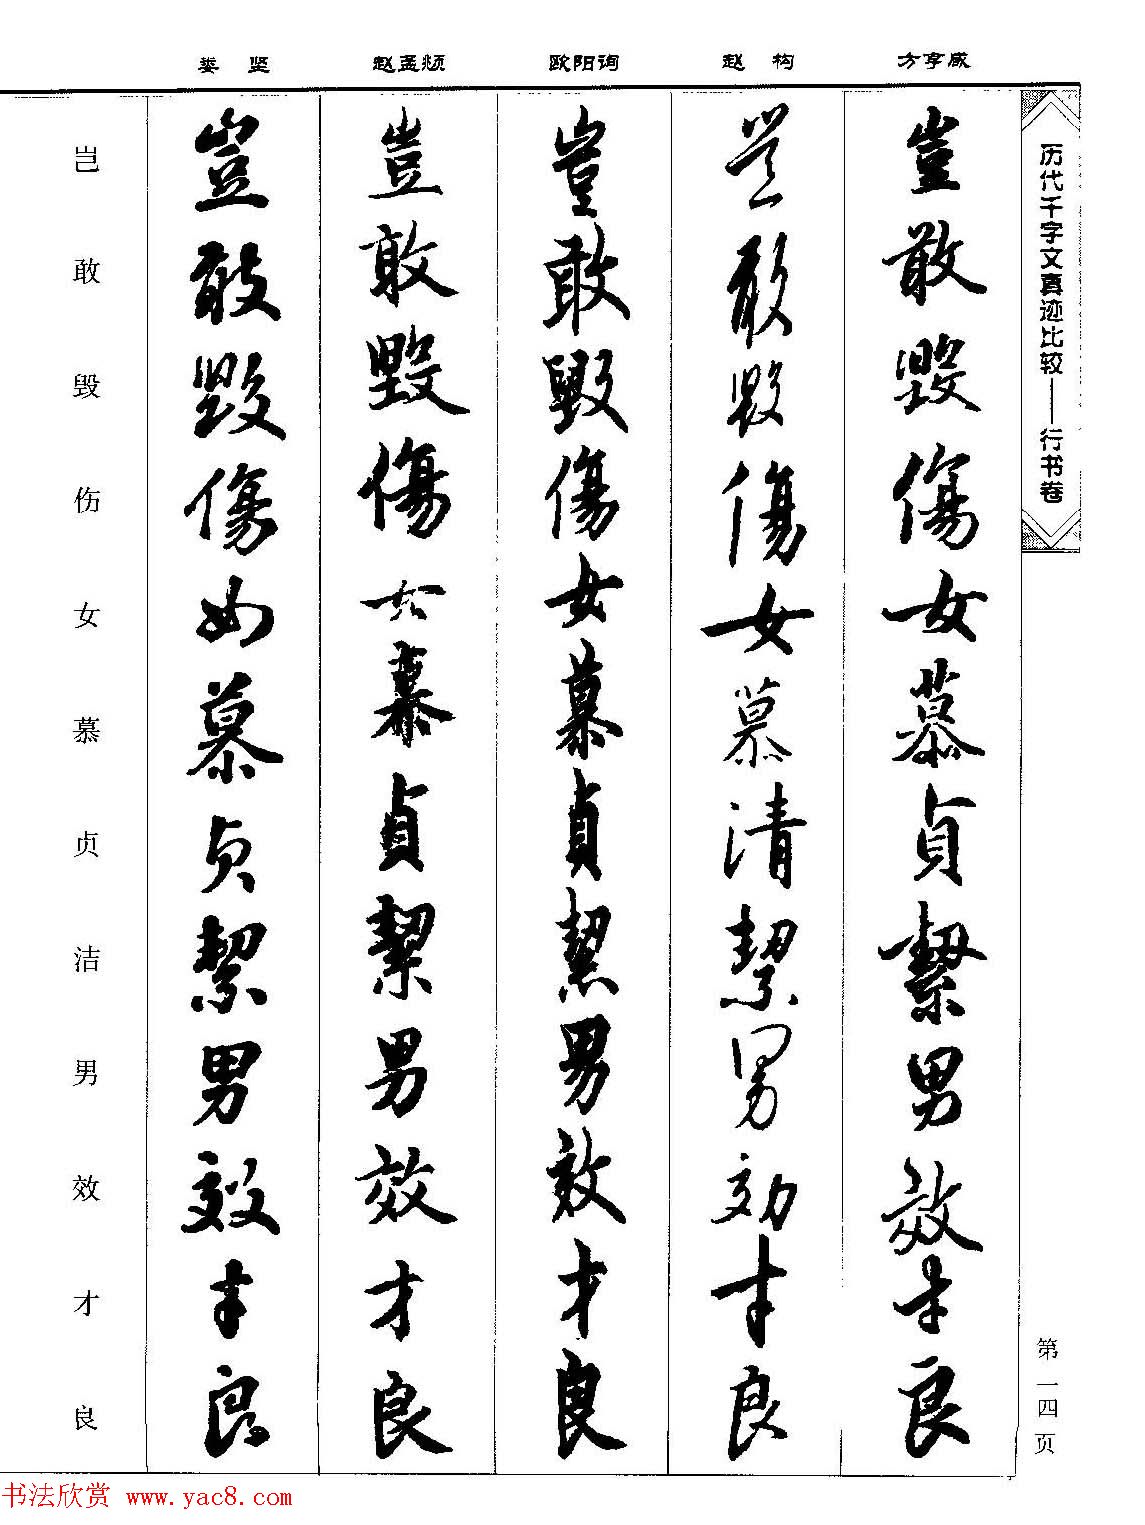 历代千字文真迹比较——行书卷
第一四页
方亨咸
豈敢毀傷女慕貞絜男效才良
赵构
豈敢毀傷女慕清絜男効才良
欧阳询
豈敢毀傷女慕貞絜男效才良
赵孟𫖯
豈敢毀傷女慕貞絜男效才良
娄坚
豈敢毀傷女慕貞絜男效才良
岂敢毁伤女慕贞洁男效才良
书法欣赏 www.yac8.com